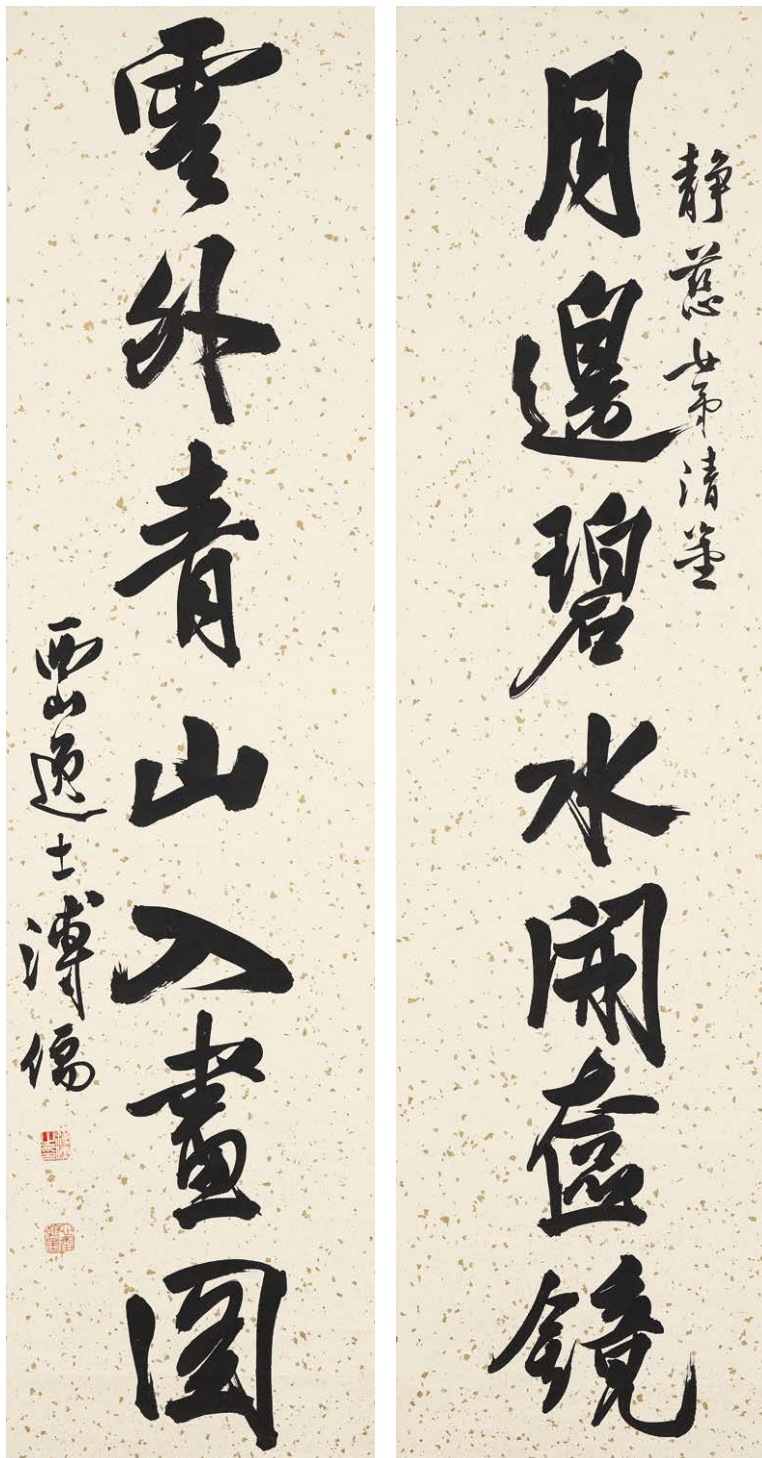 靜慈女弟清鑒
月邊碧水開奩鏡
雲外青山入畫圖
西山逸士溥儒